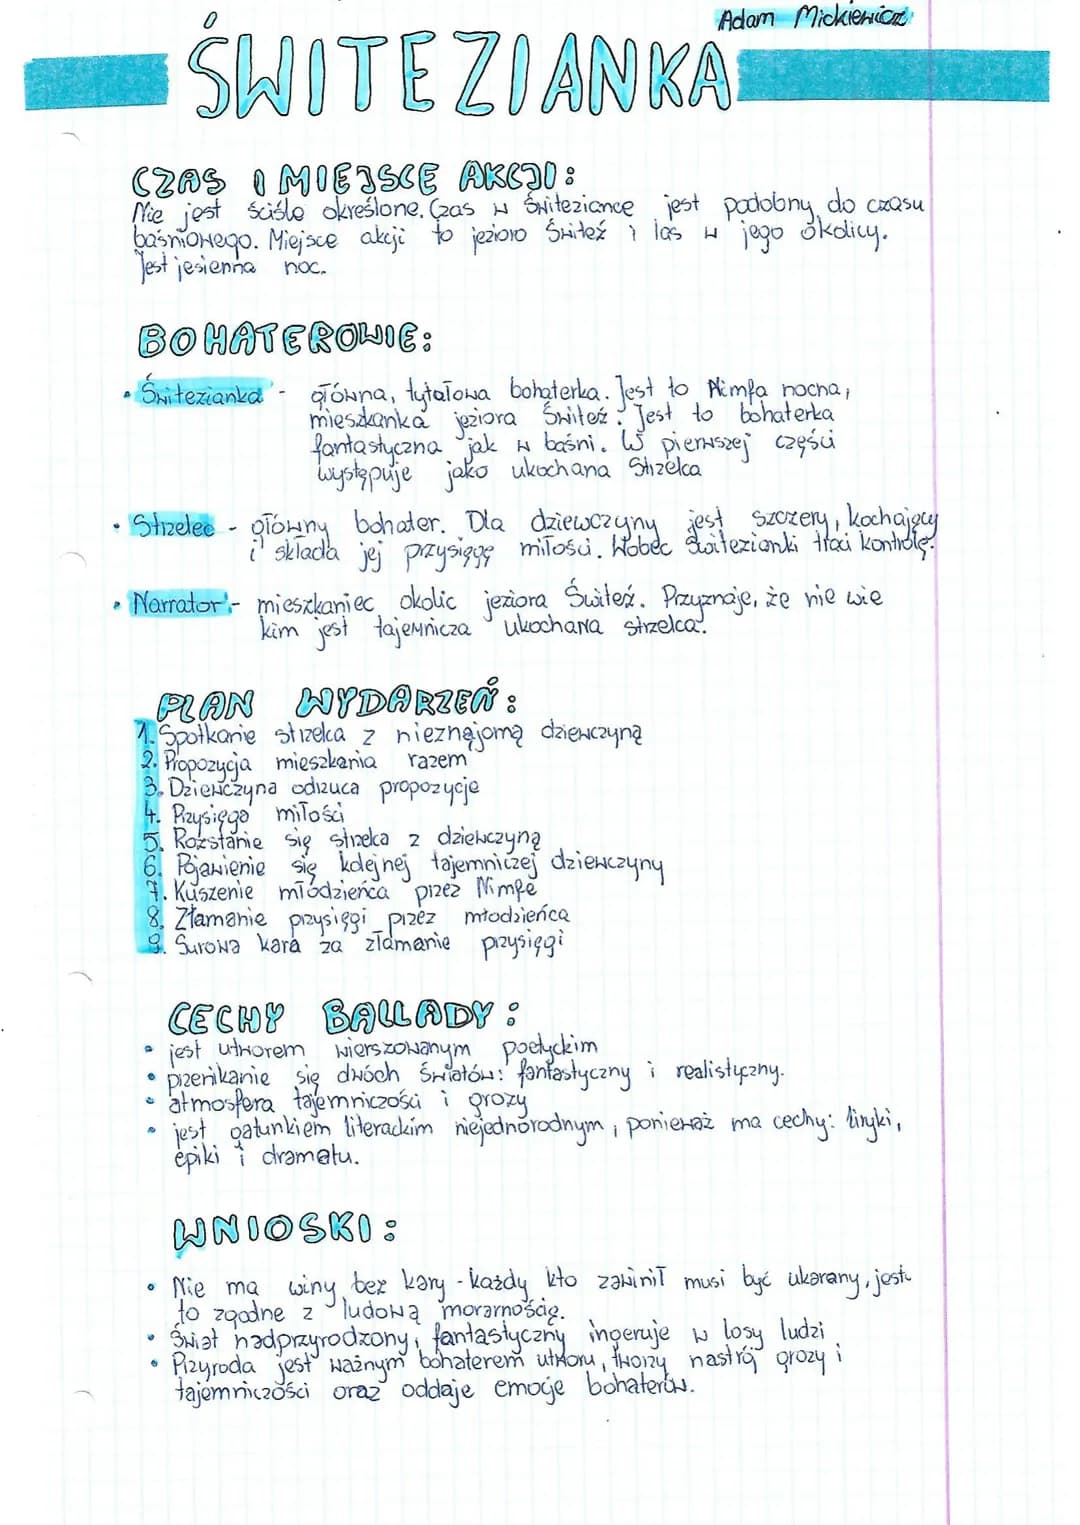 Adam Mickiewicz
ŚWITEZIANKA
CZAS I MIEJSCE AKCJI:
Nie jest ściśle określone. Czas w Świteziance jest podobny do czasu
baśniowego. Miejsce akcji to jezioro Świteź i las w jego okolicy.
Jest jesienna noc.
BOHATEROWIE:
• Świtezianka - główna, tytałowa bohaterka. Jest to Nimfa nocna,
mieszkanka jeziora Świteź. Jest to bohaterka
fantastyczna jak w baśni. W pierwszej części
występuje jako ukochana Strzelca
• Strzelec - główny bohater. Dla dziewczyny jest szczery, kochający
i składa jej przysięgę miłości. Wobec Świtezianki traci kontrolę.
• Narrator - mieszkaniec okolic jeziora Świteź. Przyznaje, że nie wie
kim jest tajemnicza ukochana strzelca.
PLAN WYDARZEŃ:
1. Spotkanie strzelca z nieznajomą dziewczyną
2. Propozycja mieszkania razem
3. Dziewczyna odrzuca propozycje
4. Przysięga miłości
5. Rozstanie się strzelca z dziewczyną
6. Pojawienie się kolejnej tajemniczej dziewczyny
7. Kuszenie młodzieńca przez Nimfe
8. Złamanie przysięgi przez młodzieńca
9. Surowa kara za złamanie przysięgi
CECHY BALLADY:
• jest utworem wierszowanym poetyckim
• przenikanie się dwóch światów: fantastyczny i realistyczny.
• atmosfera tajemniczości i grozy
• jest gatunkiem literackim niejednorodnym, ponieważ ma cechy: liryki,
epiki i dramatu.
WNIOSKI:
• Nie ma winy bez kary - każdy kto zawinił musi być ukarany, jest
to zgodne z ludową moralnością.
• Świat nadprzyrodzony, fantastyczny ingeruje w losy ludzi
• Przyroda jest ważnym bohaterem utworu, tworzy nastrój grozy i
tajemniczości oraz oddaje emocje bohaterów.